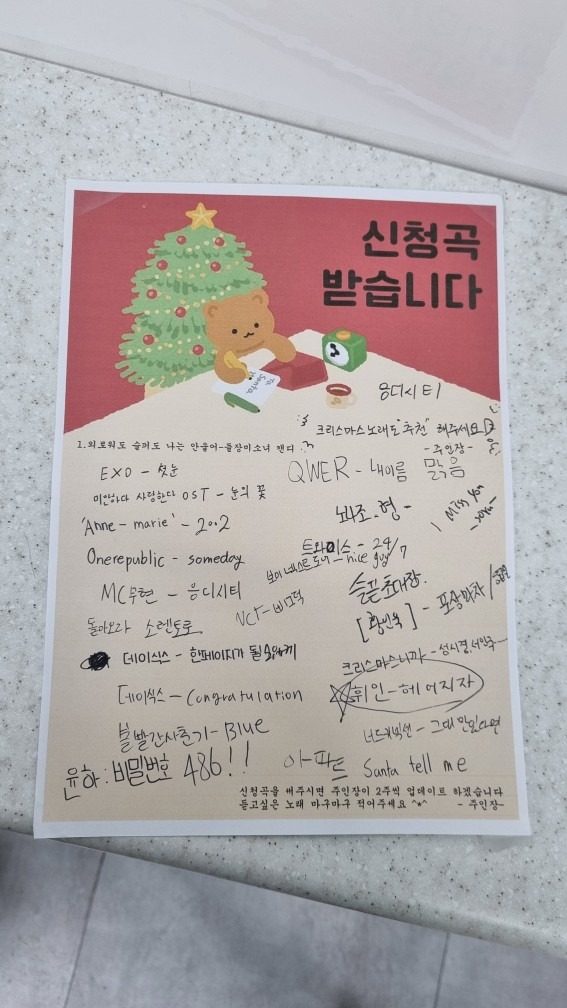 신청곡
받습니다
To
Santa
응디시티
크리스마스노래도 "추천" 해주세요
-주인장-
1.외로워도 슬퍼도 나는 안울어-들장미소녀 캔디
EXO - 첫눈
QWER - 내이름 맑음
미안하다 사랑한다 OST - 눈의 꽃
I Miss you
-soyou-
'Anne-marie' - 2002
뇌조.형 -
Onerepublic - someday
트와이스 - 24/7
보이넥스트도어 - nice guy
MC무현 - 응디시티
슬픈초대장
NCT-
[황인욱] - 포장마차
돌아오라 소렌토로
데이식스 - 한페이지가 될 수 있게
크리스마스니까 - 성시경,서인국
휘인-헤어지자
데이식스 - Congratulation
너드커넥션 - 그대만 있다면
볼빨간사춘기 - Blue
아파트
Santa tell me
윤하 : 비밀번호 486!!
신청곡을 써주시면 주인장이 2주씩 업데이트 하겠습니다
듣고싶은 노래 마구마구 적어주세요 ^*^
-주인장-